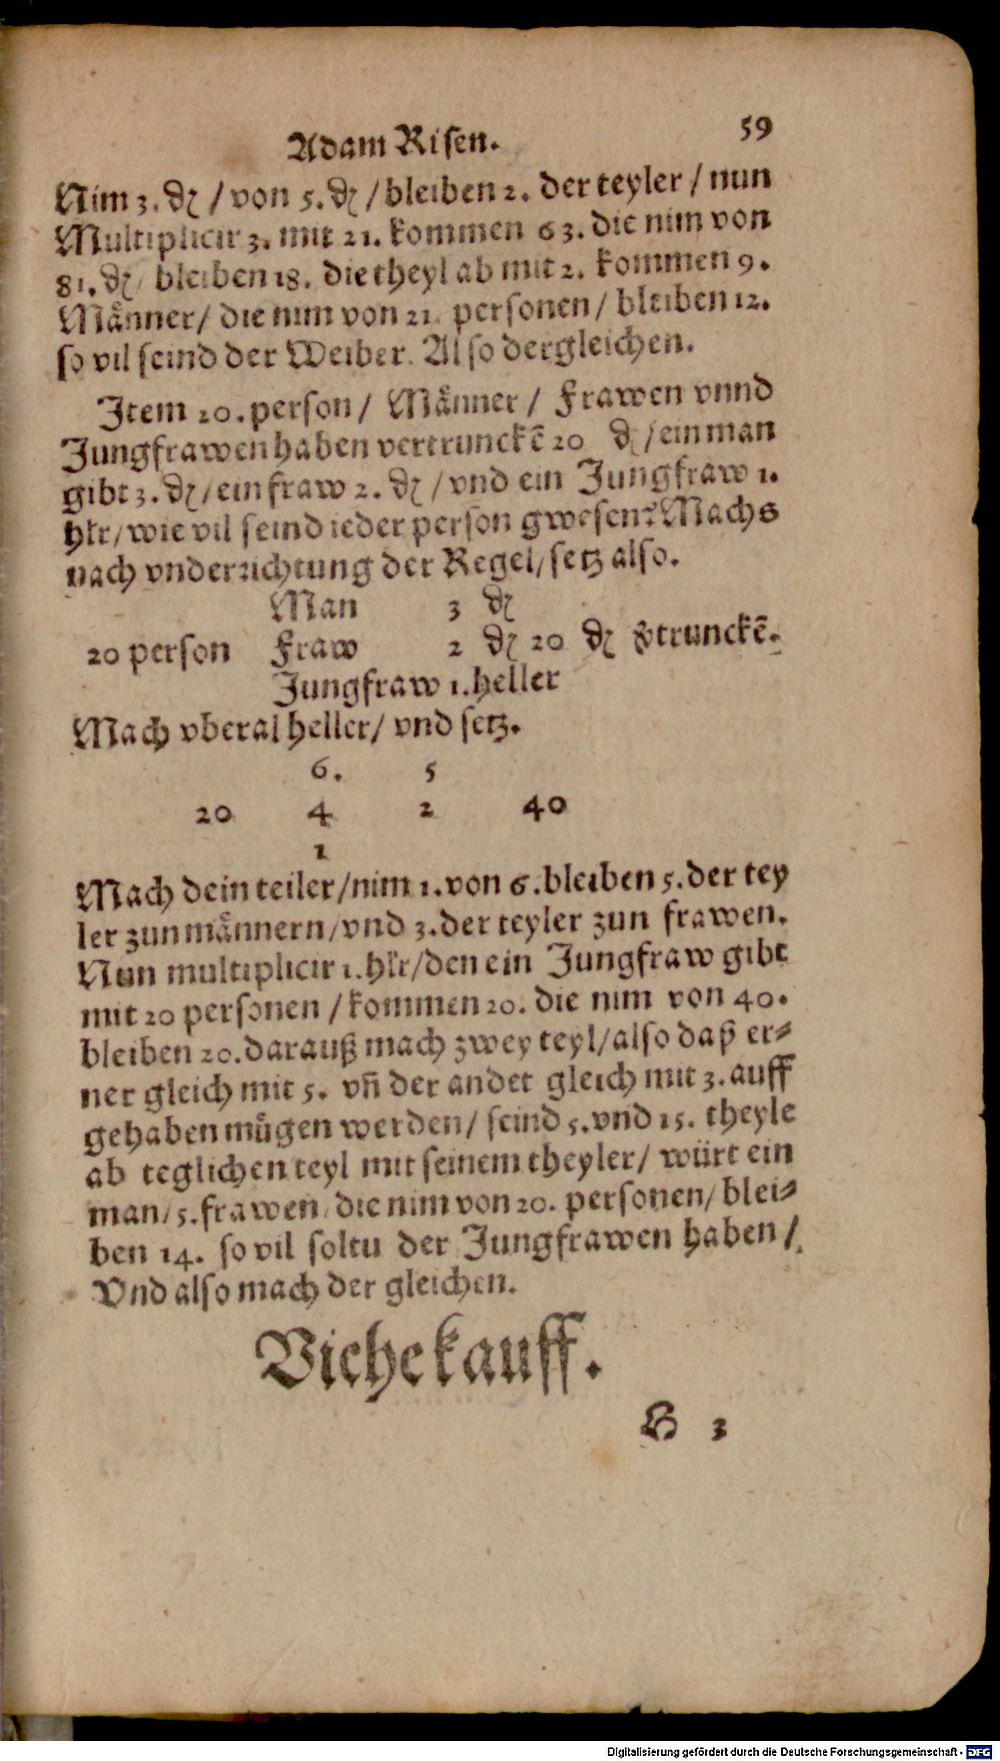 Adam Risen. 59
Nim 3. ₰ / von 5. ₰ / bleiben 2. der teyler / nun
Multiplicir 3. mit 21. kommen 63. die nim von
81. ₰ / bleiben 18. die theyl ab mit 2. kommen 9.
Maͤnner / die nim von 21. personen / bleiben 12.
so vil seind der Weiber. Also dergleichen.
Item 20. person / Maͤnner / Frawen vnnd
Jungfrawen haben vertrunckē 20 ₰ / ein man
gibt 3. ₰ / ein fraw 2. ₰ / vnd ein Jungfraw 1.
hlr / wie vil seind ieder person gwesen? Machs
nach vnderrichtung der Regel / setz also.
Man 3 ₰
20 person Fraw 2 ₰ 20 ₰ v̄trunckē.
Jungfraw 1. heller
Mach vberal heller / vnd setz.
6. 5
20 4 2 40
1
Mach dein teiler / nim 1. von 6. bleiben 5. der tey
ler zun maͤnnern / vnd 3. der teyler zun frawen.
Nun multiplicir 1. hlr / den ein Jungfraw gibt
mit 20 personen / kommen 20. die nim von 40.
bleiben 20. darauß mach zwey teyl / also daß er-
ner gleich mit 5. vñ der andet gleich mit 3. auff
gehaben muͤgen werden / seind 5. vnd 15. theyle
ab teglichen teyl mit seinem theyler / würt ein
man / 5. frawen / die nim von 20. personen / blei-
ben 14. so vil soltu der Jungfrawen haben /
Vnd also mach der gleichen.
Viehekauff.
H 3
Digitalisierung gefördert durch die Deutsche Forschungsgemeinschaft - DFG